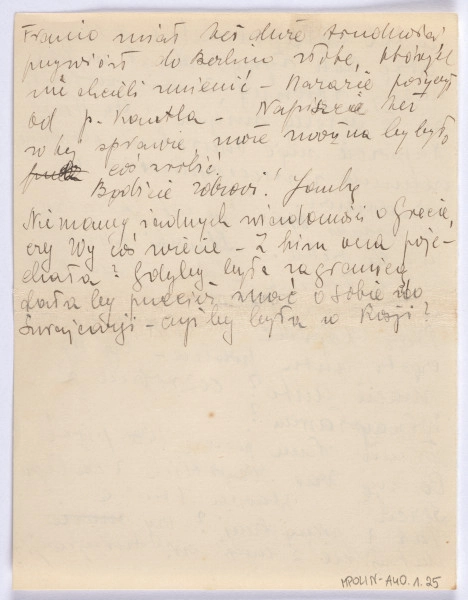 Franio miał też duże trudności
przywiózł do Berlina złote, których
nie chcieli zmienić - Narazie pożyczył
od p. Kantla - Napiszcie też
w tej sprawie, może można by było
coś zrobić.
Bądźcie zdrowi! Janka
Nie mamy żadnych wiadomości o Grecie,
czy Wy coś wiecie - z kim ona poje-
chała? Gdyby była zagranicą
dała by przecież znać o sobie do
Szwajcarji - czyżby była w Rosji?
MPOLIN-A40.1.25